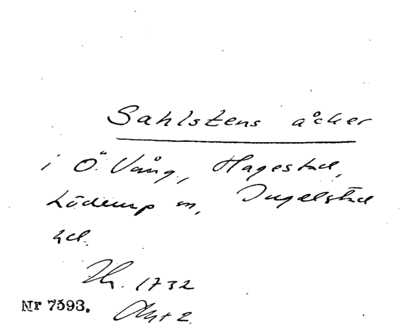 Sahlstens åcker
i Ö. Vång, Hagestad,
Löderup sn, Ingelstad
hd.
Nr 7593.
1732